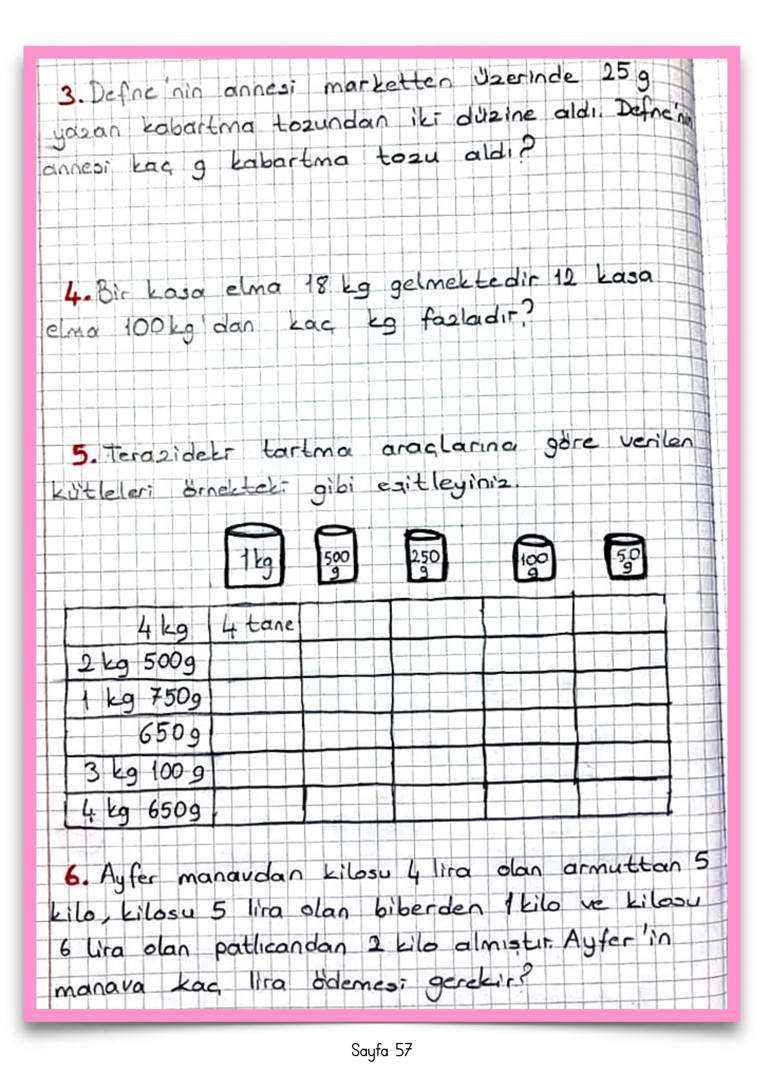 3. Defne'nin annesi marketten üzerinde 25 g
yazan kabartma tozundan iki düzine aldı. Defne'nin
annesi kaç g kabartma tozu aldı?
4. Bir kasa elma 18 kg gelmektedir 12 kasa
elma 100kg'dan kaç kg fazladır?
5. Terazideki tartma araçlarına göre verilen
kütleleri örnekteki gibi eşitleyiniz.
1kg 500 g 250 g 100 g 50 g
4 kg 4 tane
2 kg 500g
1 kg 750g
650g
3 kg 100 g
4 kg 650g
6. Ayfer manavdan kilosu 4 lira olan armuttan 5
kilo, kilosu 5 lira olan biberden 1 kilo ve kilosu
6 lira olan patlıcandan 2 kilo almıştır. Ayfer'in
manava kaç lira ödemesi gerekir?
Sayfa 57